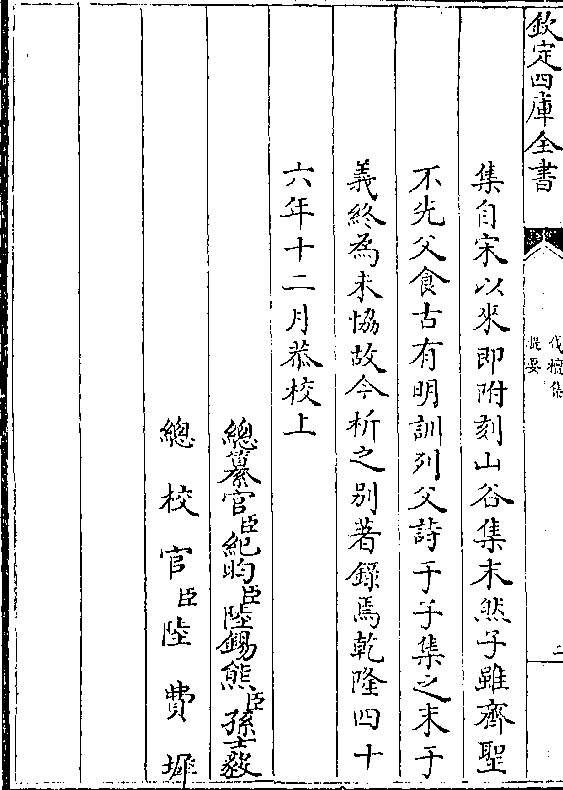 欽定四庫全書
伐檀集
提要
二
集自宋以來即附刻山谷集末然子雖齊聖
不先父食古有明訓列父詩于子集之末于
義終為未協故今析之别著錄焉乾隆四十
六年十二月恭校上
總纂官臣紀昀臣陸錫熊臣孫士毅
總校官臣陸費墀